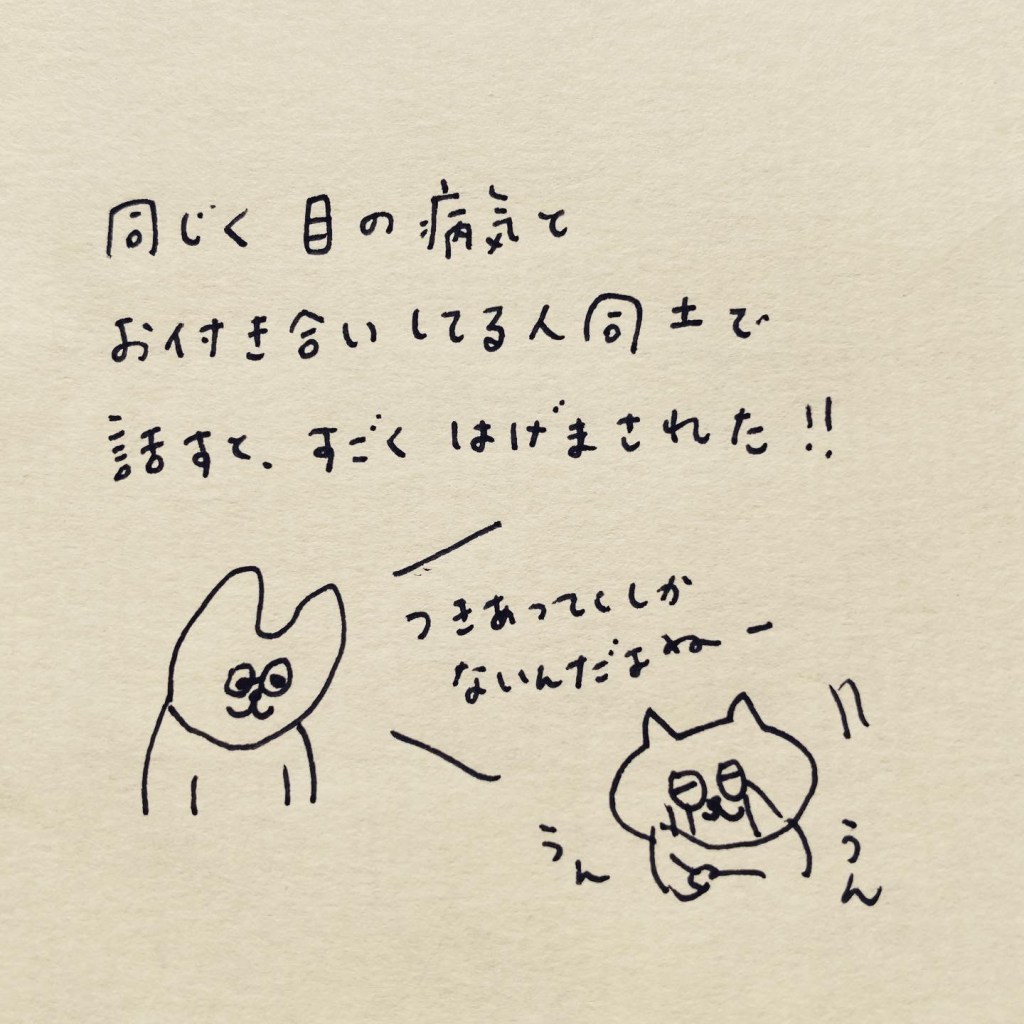 同じく目の病気と
お付き合いしてる人同士で
話すと、すごくはげまされた!!
つきあってくしか
ないんだよねー
うん
うん